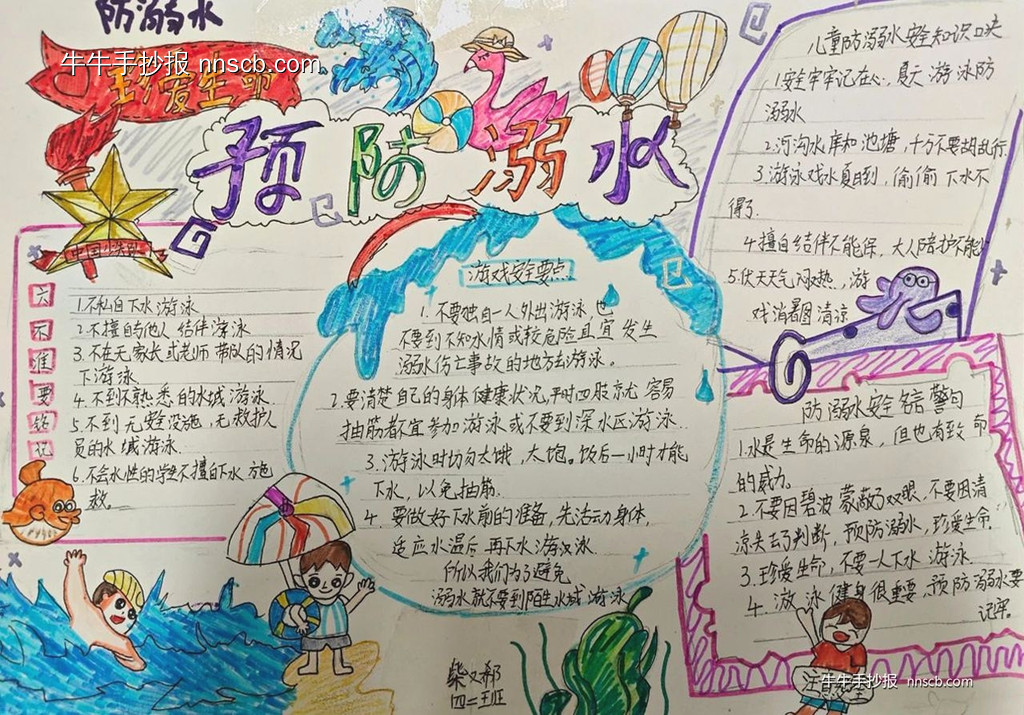 防溺水
牛牛手抄报 nnscb.com
珍爱生命
预防溺水
中国少先队
六不准要铭记
1.不私自下水游泳
2.不擅自与他人结伴游泳
3.不在无家长或老师带队的情况
下游泳
4.不到不熟悉的水域游泳.
5.不到无安全设施,无救护人
员的水域游泳.
6.不会水性的学生不擅自下水施
救。
游戏安全要点
1.不要独自一人外出游泳,也
不要到不知水情或较危险且宜发生
溺水伤亡事故的地方去游泳。
2.要清楚自己的身体健康状况,平时四肢就容易
抽筋者不宜参加游泳或不要到深水区游泳.
3.游泳时切勿太饿,太饱。饭后一小时才能
下水,以免抽筋.
4.要做好下水前的准备,先活动身体,
适应水温后再下水游泳.
所以我们为了避免
溺水就不要到陌生水域游泳
儿童防溺水安全知识口诀
1.安全牢牢记在心,夏天游泳防
溺水
2.河沟水库和池塘,千万不要胡乱行.
3.游泳戏水夏日到,偷偷下水不
得了.
4.擅自结伴不能保,大人陪护不能少
5.伏天天气闷热,游
戏消暑图清凉
防溺水安全名言警句
1.水是生命的源泉,但也有致命
的威力。
2.不要因碧波蒙蔽了双眼,不要因清
凉失去了判断,预防溺水,珍爱生命.
3.珍爱生命,不要一人下水游泳
4.游泳健身很重要,预防溺水要
记牢。
四二班
牛牛手抄报 nnscb.com